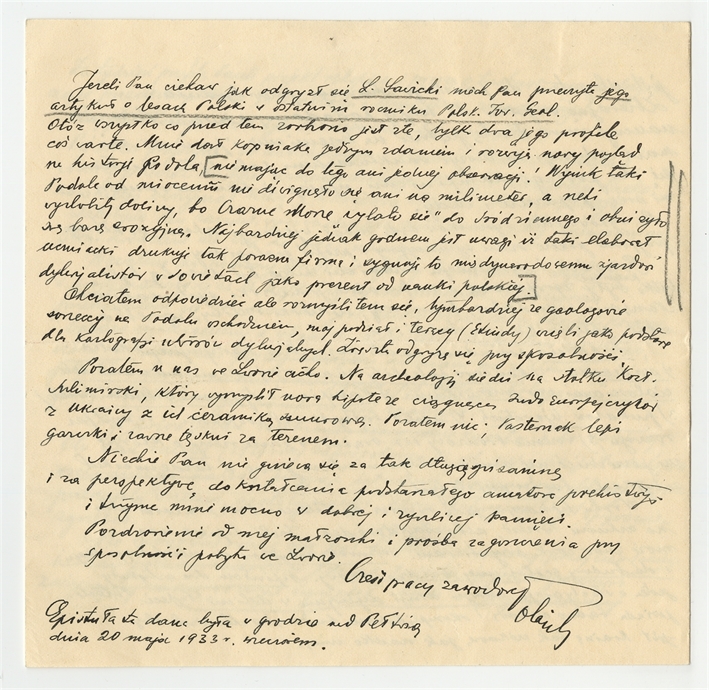 Jeżeli Pan ciekaw jak odgryzł się L. Sawicki niech Pan przeczyta jego
artykuł o lesach Polski w ostatnim roczniku Polsk. Tow. Geol.
Otóż wszystko co przed tem zrobiono jest złe, tylko dwa jego profile
coś warte. Mnie dał kopniaka jednym zdaniem i rozwija nowy pogląd
na historję Podola, nie mając do tego ani jednej obserwacji! Wynik taki
Podole od miocenu nie dźwignęło się ani na milimeter, a rzeki
wyżłobiły doliny, bo Czarne Morze "wylało się" do śródziemnego i obniżyło
swą bazę erozyjną. Najbardziej jednak godnem jest uwagi iż taki elaborat
drukuje tak poważna firma i sygnuje to międzynarodowemu zjazdowi
dyluwjalistów w Sowietach jako prezent od nauki polskiej.
Chciałem odpowiedzieć ale rozmyśliłem się, tymbardziej że geologowie
sowieccy na Podolu wschodniem, mój podział i terasy wzięli jako podstawę
dla kartografji utworów dyluwjalnych. Zresztą odgryzę się przy sposobności.
Pozatem u nas we Lwowie cicho. Na archeologji siedzi na stołku Kozł.
Sulimirski, który wymyślił nową hipotezę ciągnącą Indoeuropejczyków
z Ukrainy z ich ceramiką sznurową. Pozatem nic; Pasternak lepi
garnki i rzewnie tęskni za terenem.
Niechże Pan nie gniewa się za tak długą pisaninę
i za perspektywę dokształcenia podstarzałego amatora prehistorji
i trzyma mnie mocno w dobrej i życzliwej pamięci.
Pozdrowienie od mej małżonki i prośba zagoszczenia przy
sposobności pobytu we Lwowie.
Cześć pracy zawodowej
Epistuła ta dana była w grodzie nad Pełtwią
dnia 20 maja 1933 r. wieczorem.